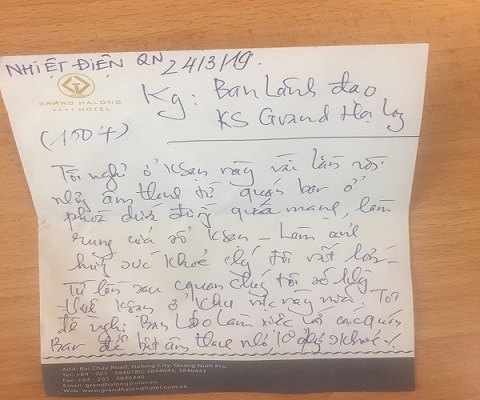 NHIỆT ĐIỆN QN 24/3/19.
GRAND HALONG
HOTEL
Kg: Ban Lãnh đạo
KS Grand Hạ Long
(1004)
Tôi nghỉ ở Ksạn này vài lần rồi
âm thanh từ quán bar ở
phía dưới động quá mạnh, làm
rung cửa sổ Ksạn - Làm ảnh
hưg sức khoẻ chg tôi rất lớn -
Từ lần sau cquan chg tôi sẽ khg
thuê Ksạn ở khu vực này nữa. Tôi
đề nghị Ban Lđạo làm việc với các quán
Bar để bật âm thanh nhỏ,
Add: Bai Chay Road, Halong City, Quang Ninh Pro.
Tel: +84 - 203 - 3846780, 3844043, 3846443
Fax: +84 - 203 - 3846440
Website: www.grandhalonghotel.com.vn